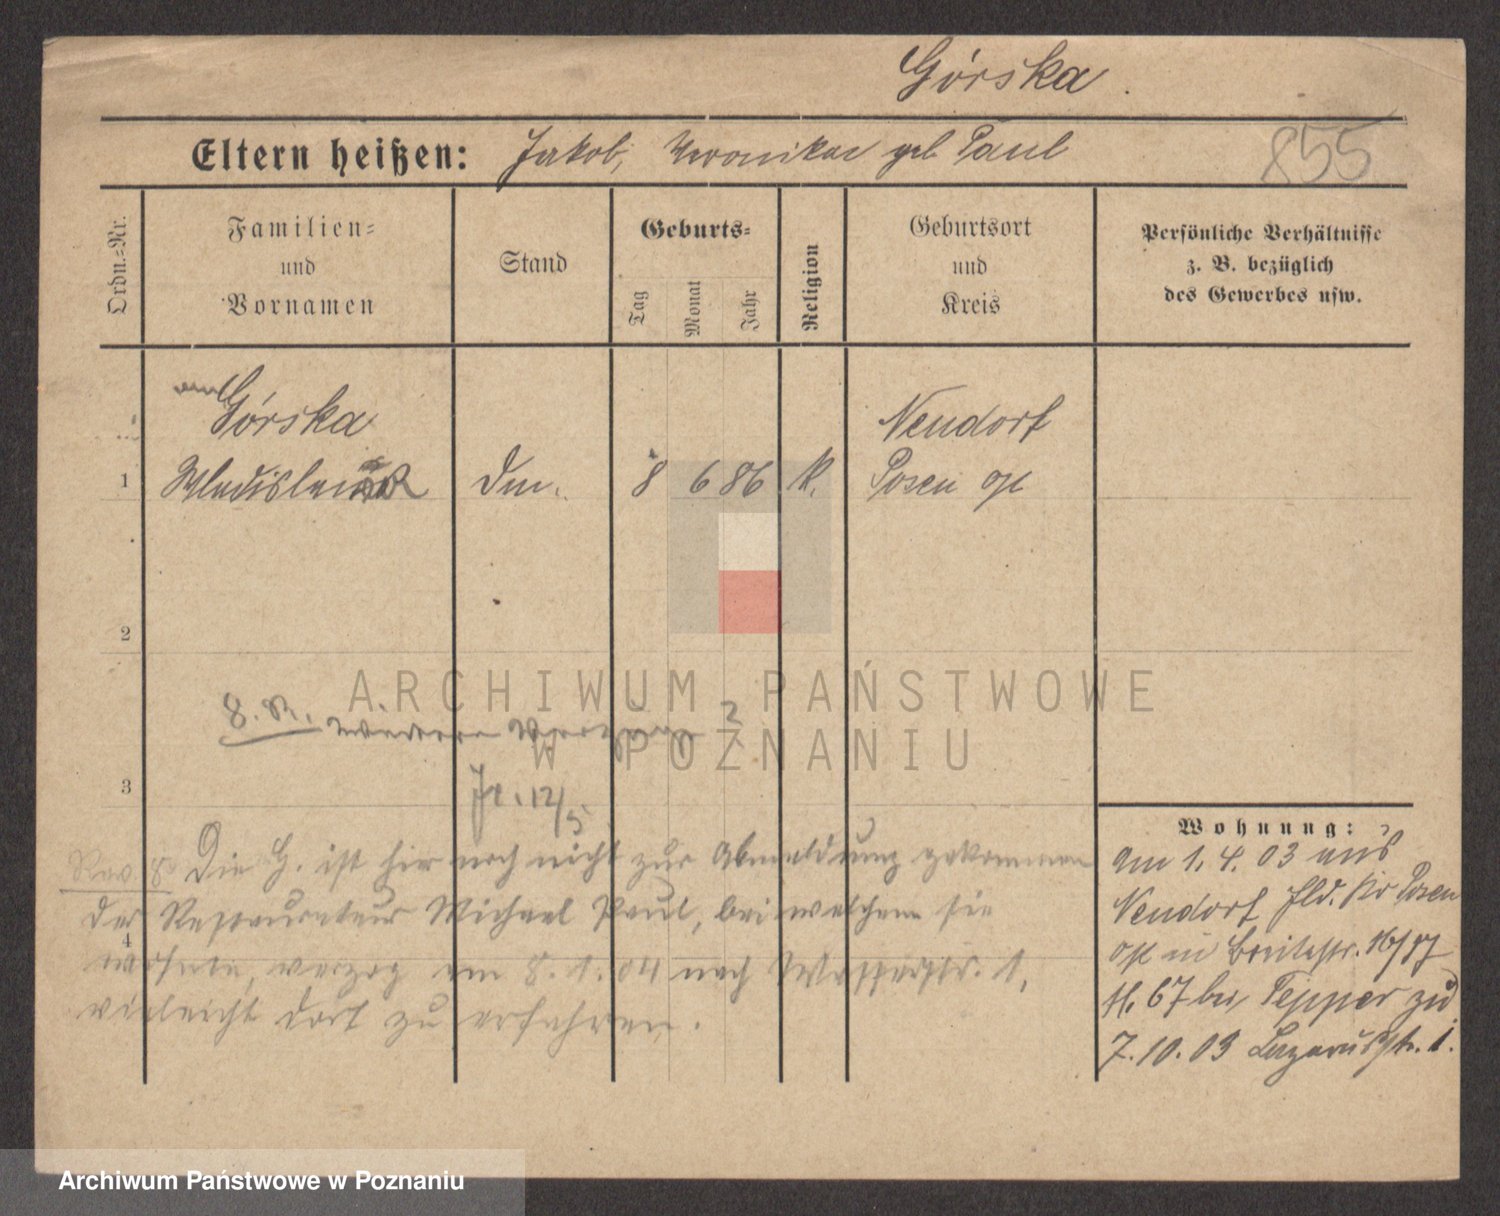 Górska.
Eltern heißen: Jakob, Veronika geb Paul
855
Ordn.=Nr.
Familien=
und
Vornamen
Stand
Geburts=
Tag
Monat
Jahr
Religion
Geburtsort
und
Kreis
Persönliche Verhältnisse
z. B. bezüglich
des Gewerbes usw.
Górska
Neudorf
1
Wladislawa
8 6 86
K.
Posen
2
8. R.
3
12/5
Wohnung:
am 1. 4. 03 aus
Neudorf Kr Posen
in Breitestr. 16/17
67 bei Tepper zu
7. 10. 03 Lazarusstr. 1.
Rev. 8
Die G. ist hier noch nicht zur Abmeldung gekommen
der Restaurateur Michael Paul, bei welchem sie
4
wohnte, verzog am 8. 1. 04 nach Wasserstr. 1,
vielleicht dort zu erfahren.
ARCHIWUM PAŃSTWOWE
W POZNANIU
Archiwum Państwowe w Poznaniu